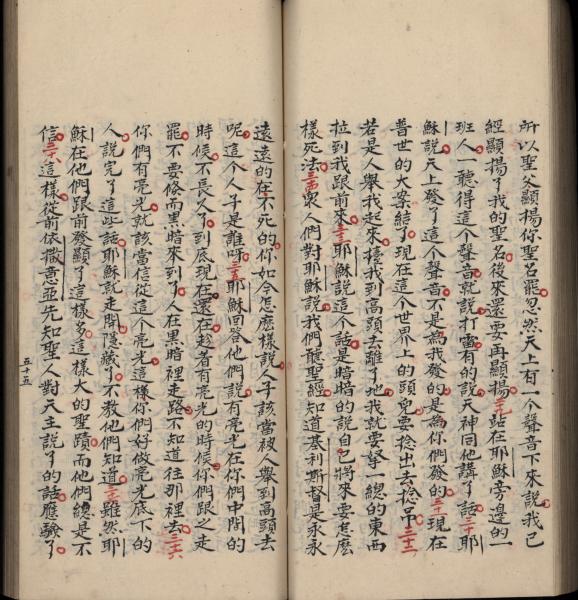 所以聖父顯揚你聖名罷忽然天上有一个聲音下來說我已
經顯揚了我的聖名後來還要再顯揚二九站在耶穌旁邊的一
班人一聽得這个聲音就說打雷有的說天神同他講了話三十耶
穌說天上發了這个聲音不是為我發的是為你們發的三十一現在
普世的大案結了現在這个世界上的頭兒要捻出去捻吊三十二
若是人舉我起來擡我到高頭去離了地我就要拏一總的東西
拉到我跟前來三十三耶穌說這个話是暗暗的說自己將來要怎麽
樣死法三十四衆人們對耶穌說我們聽聖經知道基利斯督是永永
遠遠的在不死的你如今怎麽樣說人子該當被人舉到高頭去
呢這个人子是誰呀三十五耶穌回答他們說有亮光在你們中間的
時候不長久了到底現在還在趁着有亮光的時候你們跟之走
罷不要倏而黑暗來到了人在黑暗裡走路不知道往那裡去三十六
你們有亮光就該當信從這个亮光這樣你們好做亮光底下的
人說完了這些話耶穌就走開隱藏了不教他們知道三十七雖然耶
穌在他們跟前發顯了這樣多這樣大的聖蹟而他們總是不
信三十八這樣從前依撒意亞先知聖人對天主說了的話應驗了
五十五